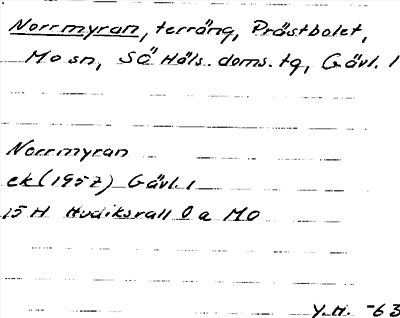 Norrmyran, terräng, Prästbolet,
Mo sn, Sö Häls. doms. tg, Gävl. l
Norrmyran
ek (1957) Gävl. l
15 H Hudiksvall 0 a MO
Y.H. -63